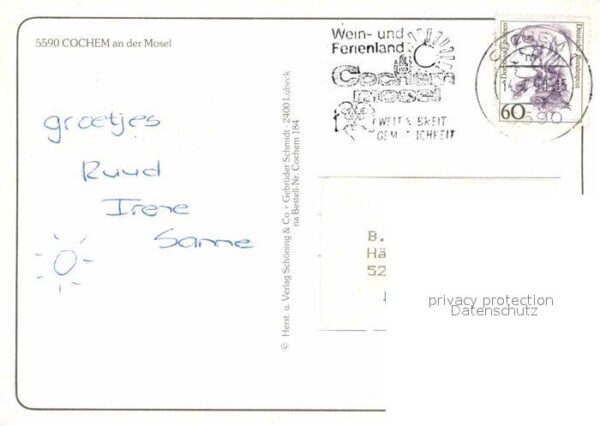 5590 COCHEM an der Mosel
groetjes
Ruud
Irene
Sanne
© Herst. u. Verlag Schöning & Co + Gebrüder Schmidt · 2400 Lübeck
na Bestell-Nr. Cochem 184
Wein- und
Ferienland
Cochem
mosel
WEIT & BREIT
GEM TLICHKEIT
Deutsche Bundespost
60
COCHEM
5590
B.
Hä
52
privacy protection
Datenschutz